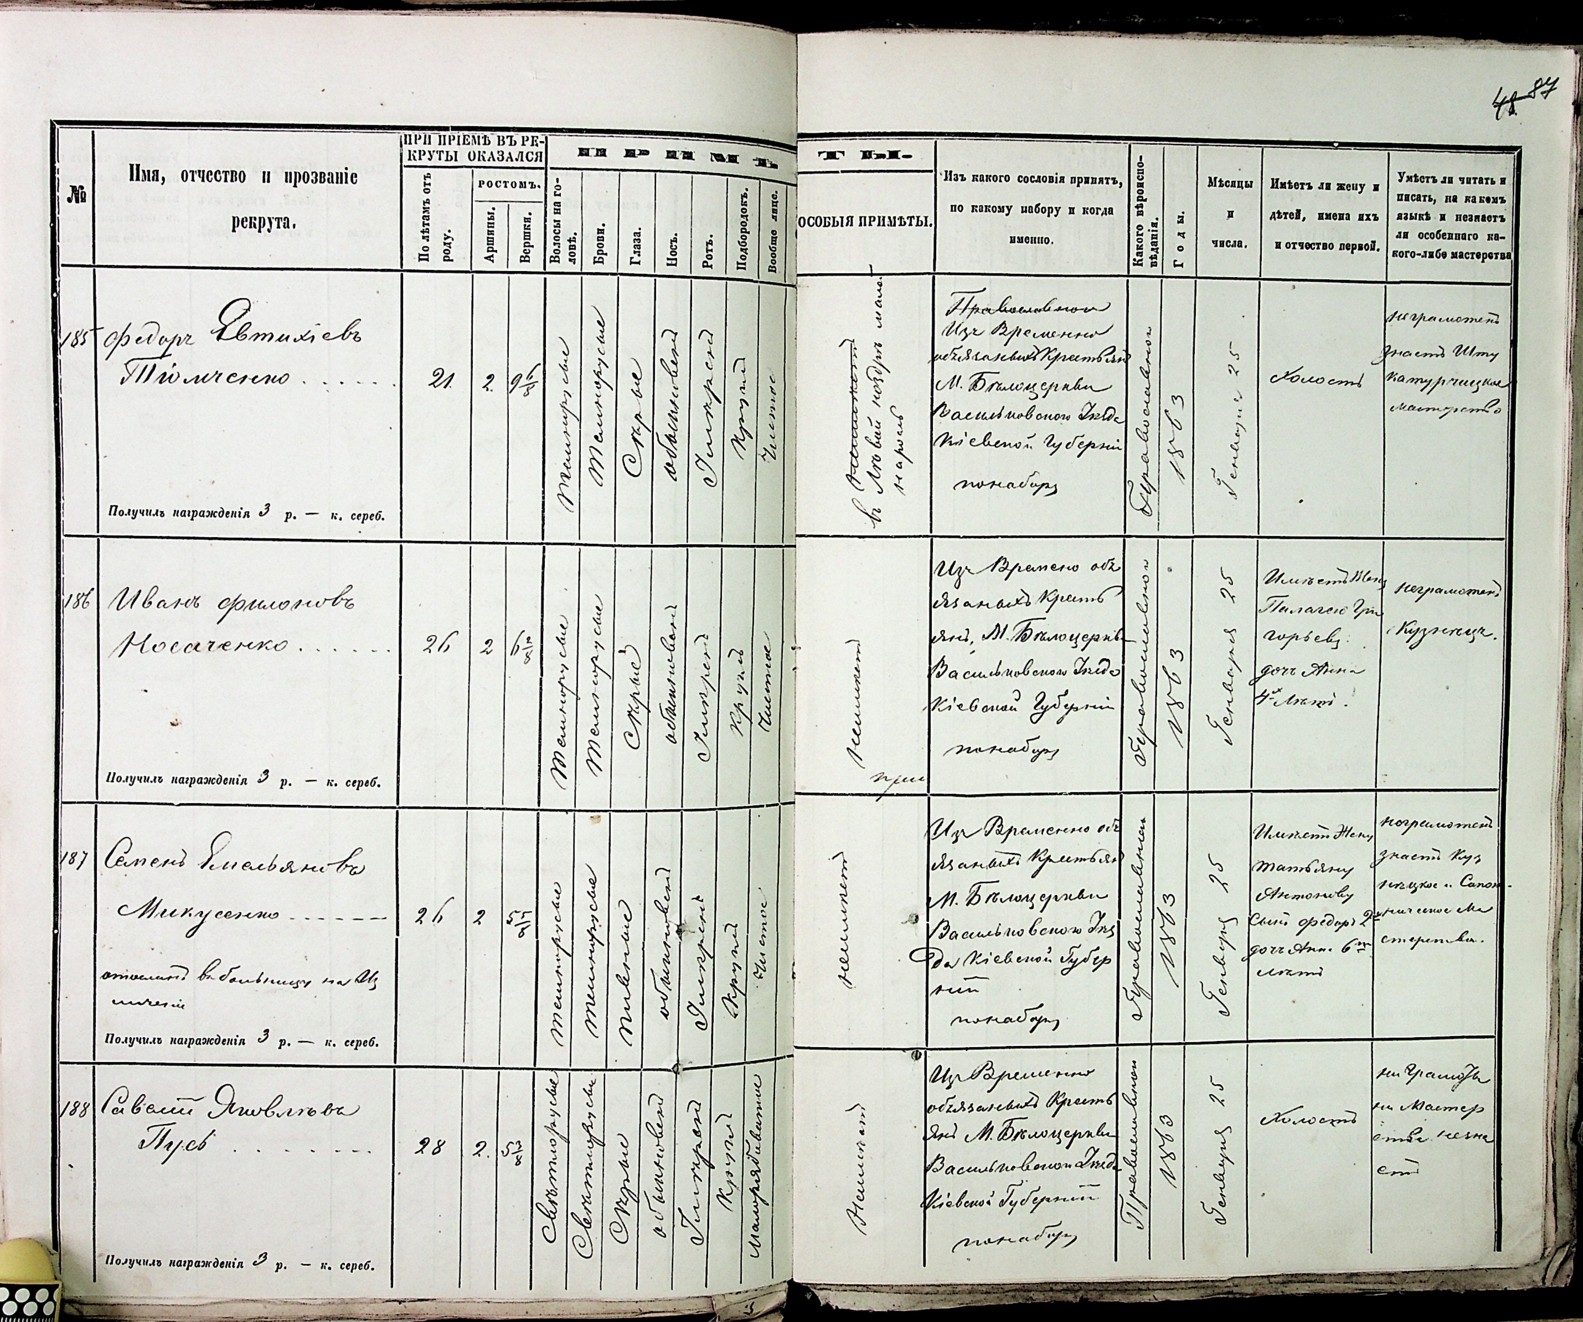 48 87
№
Имя, отчество и прозваніе
рекрута.
ПРИ ПРІЕМѢ ВЪ РЕ-
КРУТЫ ОКАЗАЛСЯ
По лѣтамъ отъ
роду.
РОСТОМЪ.
Аршины.
Вершки.
ПРИМѢТЫ.
Волосы на го-
ловѣ.
Брови.
Глаза.
Носъ.
Ротъ.
Подбородокъ.
Вообще лице.
ОСОБЫЯ ПРИМѢТЫ.
Изъ какого сословія принятъ,
по какому набору и когда
именно.
Какого вѣроиспо-
вѣданія.
Годы.
Мѣсяцы
и
числа.
Имѣетъ ли жену и
дѣтей, имена ихъ
и отчество первой.
Умѣетъ ли читать и
писать, на какомъ
языкѣ и незнаетъ
ли особеннаго ка-
кого-либо мастерства
185
Федоръ Евтихіевъ
Тимченко
Получилъ награжденія 3 р. — к. сереб.
21
2
9 6/8
Темнорусые
Темнорусые
Сѣрые
обыкновен
Умѣрен
Кругл
Чистое
в Лѣвой ноздрѣ мало
наросль
Православной
Изъ Временно
обязаныхъ Крестьян
М. Бѣлоцеркви
Васильковского Уѣзда
Кіевской Губерніи
по набору
Православного
1863
Генваря 25
Холостъ
неграмотенъ
знаетъ Шту
катурницкое
мастерство
186
Иванъ Филоновъ
Носаченко
Получилъ награжденія 3 р. — к. сереб.
26
2
Темнорусые
Темнорусые
Сѣрые
обыкновен
Умѣрен
Кругл
Чистое
неимѣет
Изъ Времено обя
язаныхъ Кресть
янъ, М. Бѣлоцеркв
Васильковского Уѣзда
Кіевской Губерніи
по набору
Православной
1863
Генваря 25
Имѣетъ Жену
Палагею Гри
горьеву.
дочь Анна
4х лѣтъ.
неграмотенъ
Кузнецъ.
187
Семенъ Емельяновъ
Микусенко
отосланъ въ больницу на из
личеніе
Получилъ награжденія 3 р. — к. сереб.
26
2
Темнорусые
Темнорусые
Пивные
обыкновен
Умѣрен
Кругл
Чистое
неимѣет
Изъ Временно об
язаныхъ Крестьян
М. Бѣлоцеркви
Васильковского Уѣз
да Кіевской Губер
ніи
по набору
Православный
1863
Генваря 25
Имѣетъ Жену
Татьяну
Антонову
Сынъ Федоръ 2
дочь Анна 6
лѣтъ
неграмотенъ
знаетъ Куз
нецкое и Сапож-
ническое Ма
стерства.
188
Савелій Яковлевъ
Пусь
Получилъ награжденія 3 р. — к. сереб.
28
2
Свѣтлорусые
Свѣтлорусые
Сѣрые
обыкновен
Умѣрен
Кругл
Малорябоватое
Неимѣет
Изъ Временно
обязаныхъ Кресть
янъ М. Бѣлоцеркви
Васильковского Уѣзда
Кіевской Губерніи
по набору
Православной
1863
Генваря 25
Холостъ
ни Грамоты
ни Мастер
ства незна
етъ